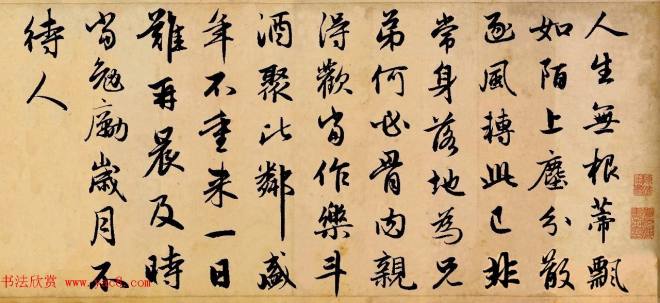 人生無根蒂飄
如陌上塵分散
逐風轉此已非
常身落地為兄
弟何必骨肉親
得歡當作樂斗
酒聚比鄰盛
年不重来一日
難再晨及時
當勉勵歲月不
待人
书法欣赏 www.yac8.com